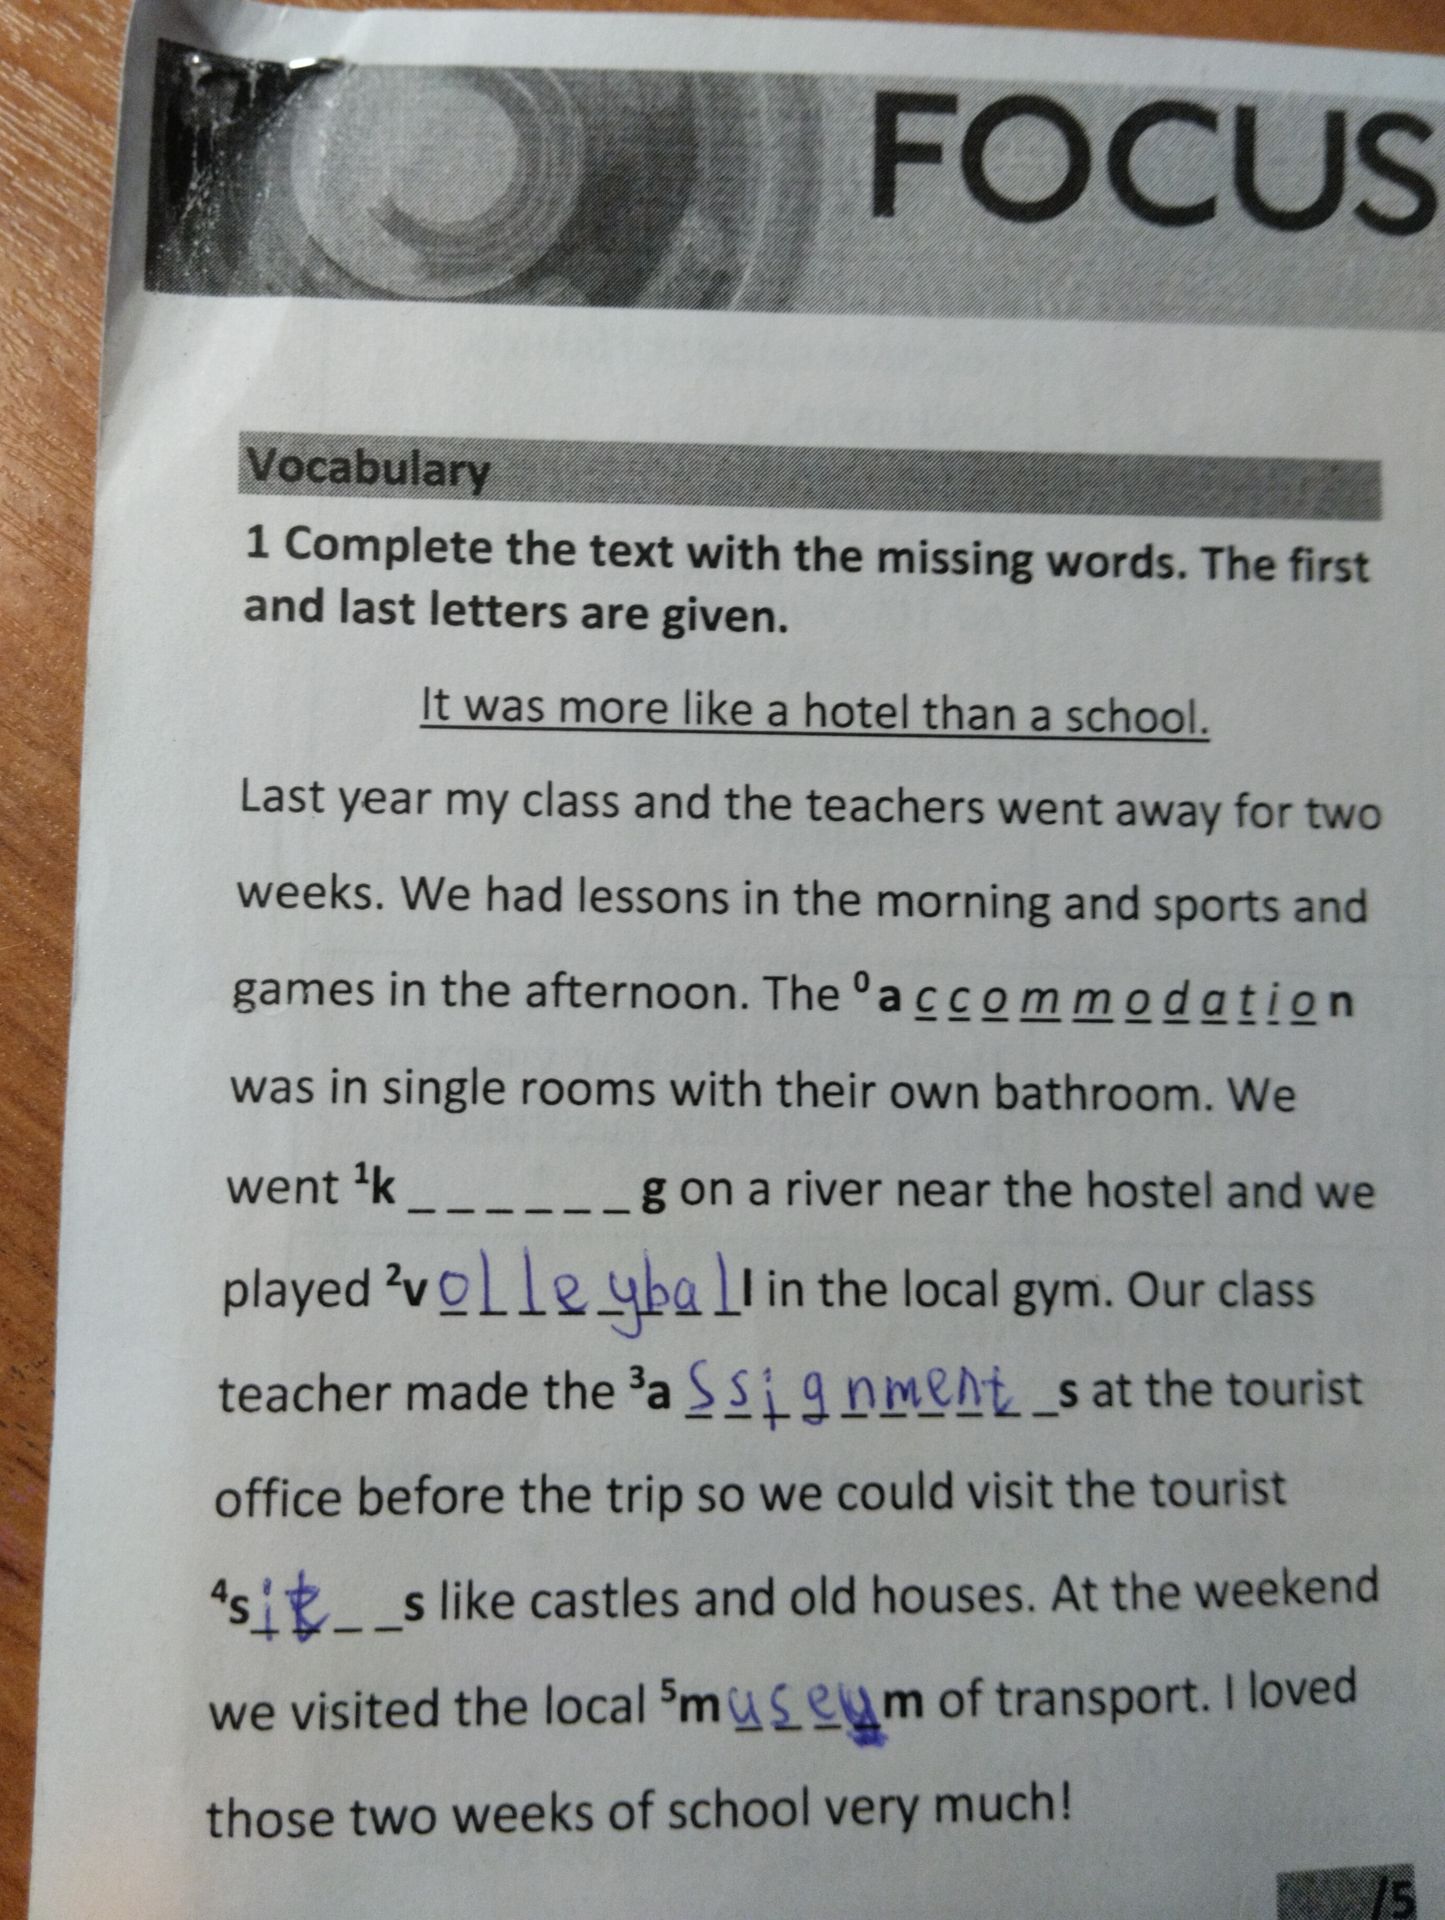 FOCUS
Vocabulary
1 Complete the text with the missing words. The first
and last letters are given.
It was more like a hotel than a school.
Last year my class and the teachers went away for two
weeks. We had lessons in the morning and sports and
games in the afternoon. The ⁰accommodation
was in single rooms with their own bathroom. We
went ¹k _ _ _ _ _ _ g on a river near the hostel and we
played ²volleyball in the local gym. Our class
teacher made the ³assignment _s at the tourist
office before the trip so we could visit the tourist
⁴sit _ _s like castles and old houses. At the weekend
we visited the local ⁵museum of transport. I loved
those two weeks of school very much!
/5